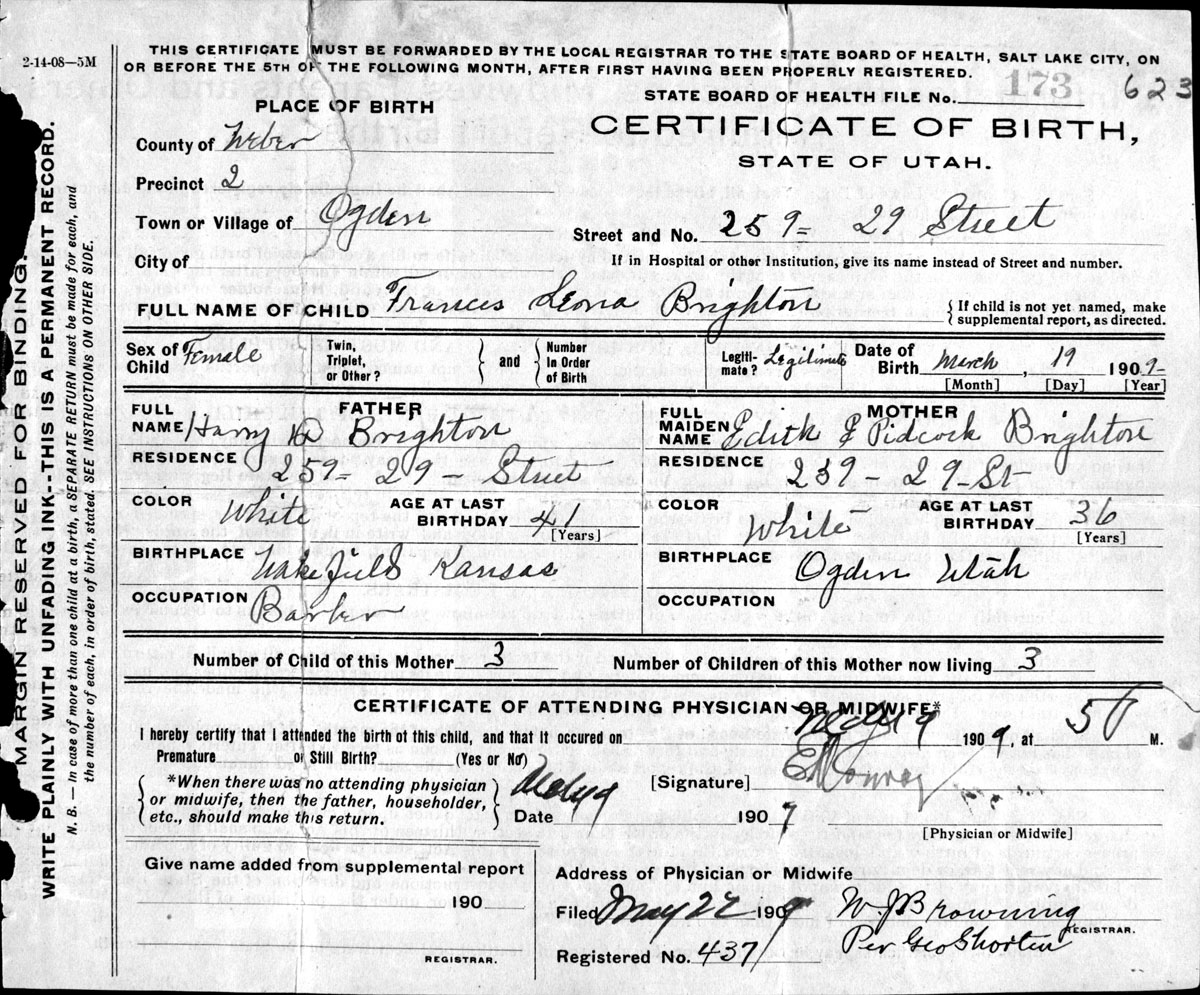 2-14-08—5M
THIS CERTIFICATE MUST BE FORWARDED BY THE LOCAL REGISTRAR TO THE STATE BOARD OF HEALTH, SALT LAKE CITY, ON
OR BEFORE THE 5TH OF THE FOLLOWING MONTH, AFTER FIRST HAVING BEEN PROPERLY REGISTERED.
STATE BOARD OF HEALTH FILE No. 173 623
PLACE OF BIRTH
CERTIFICATE OF BIRTH,
STATE OF UTAH.
County of Weber
Precinct 2
Town or Village of Ogden
Street and No. 259- 29 Street
City of
If in Hospital or other Institution, give its name instead of Street and number.
FULL NAME OF CHILD Frances Leona Brighton
If child is not yet named, make
supplemental report, as directed.
Sex of Child Female
Twin, Triplet, or Other?
and
Number In Order of Birth
Legiti-mate? Legitimate
Date of Birth March, 19 1909-
[Month] [Day] [Year]
FATHER
FULL NAME Harry Brighton
RESIDENCE 259- 29 Street
COLOR White AGE AT LAST BIRTHDAY 41
[Years]
BIRTHPLACE Wakefield Kansas
OCCUPATION Barber
MOTHER
FULL MAIDEN NAME Edith Pidcock Brighton
RESIDENCE 259- 29-St
COLOR White AGE AT LAST BIRTHDAY 36
[Years]
BIRTHPLACE Ogden Utah
OCCUPATION
Number of Child of this Mother 3 Number of Children of this Mother now living 3
CERTIFICATE OF ATTENDING PHYSICIAN OR MIDWIFE*
I hereby certify that I attended the birth of this child, and that it occured on 1909, at M.
Premature or Still Birth? (Yes or No)
*When there was no attending physician
or midwife, then the father, householder,
etc., should make this return.
[Signature]
Date 1909
[Physician or Midwife]
Give name added from supplemental report
190
REGISTRAR.
Address of Physician or Midwife
Filed May 22 1909 W J Browning
REGISTRAR.
Per Geo Shorten
Registered No. 437
MARGIN RESERVED FOR BINDING.
WRITE PLAINLY WITH UNFADING INK--THIS IS A PERMANENT RECORD.
N. B.—In case of more than one child at a birth, a SEPARATE RETURN must be made for each, and
the number of each, in order of birth, stated. SEE INSTRUCTIONS ON OTHER SIDE.